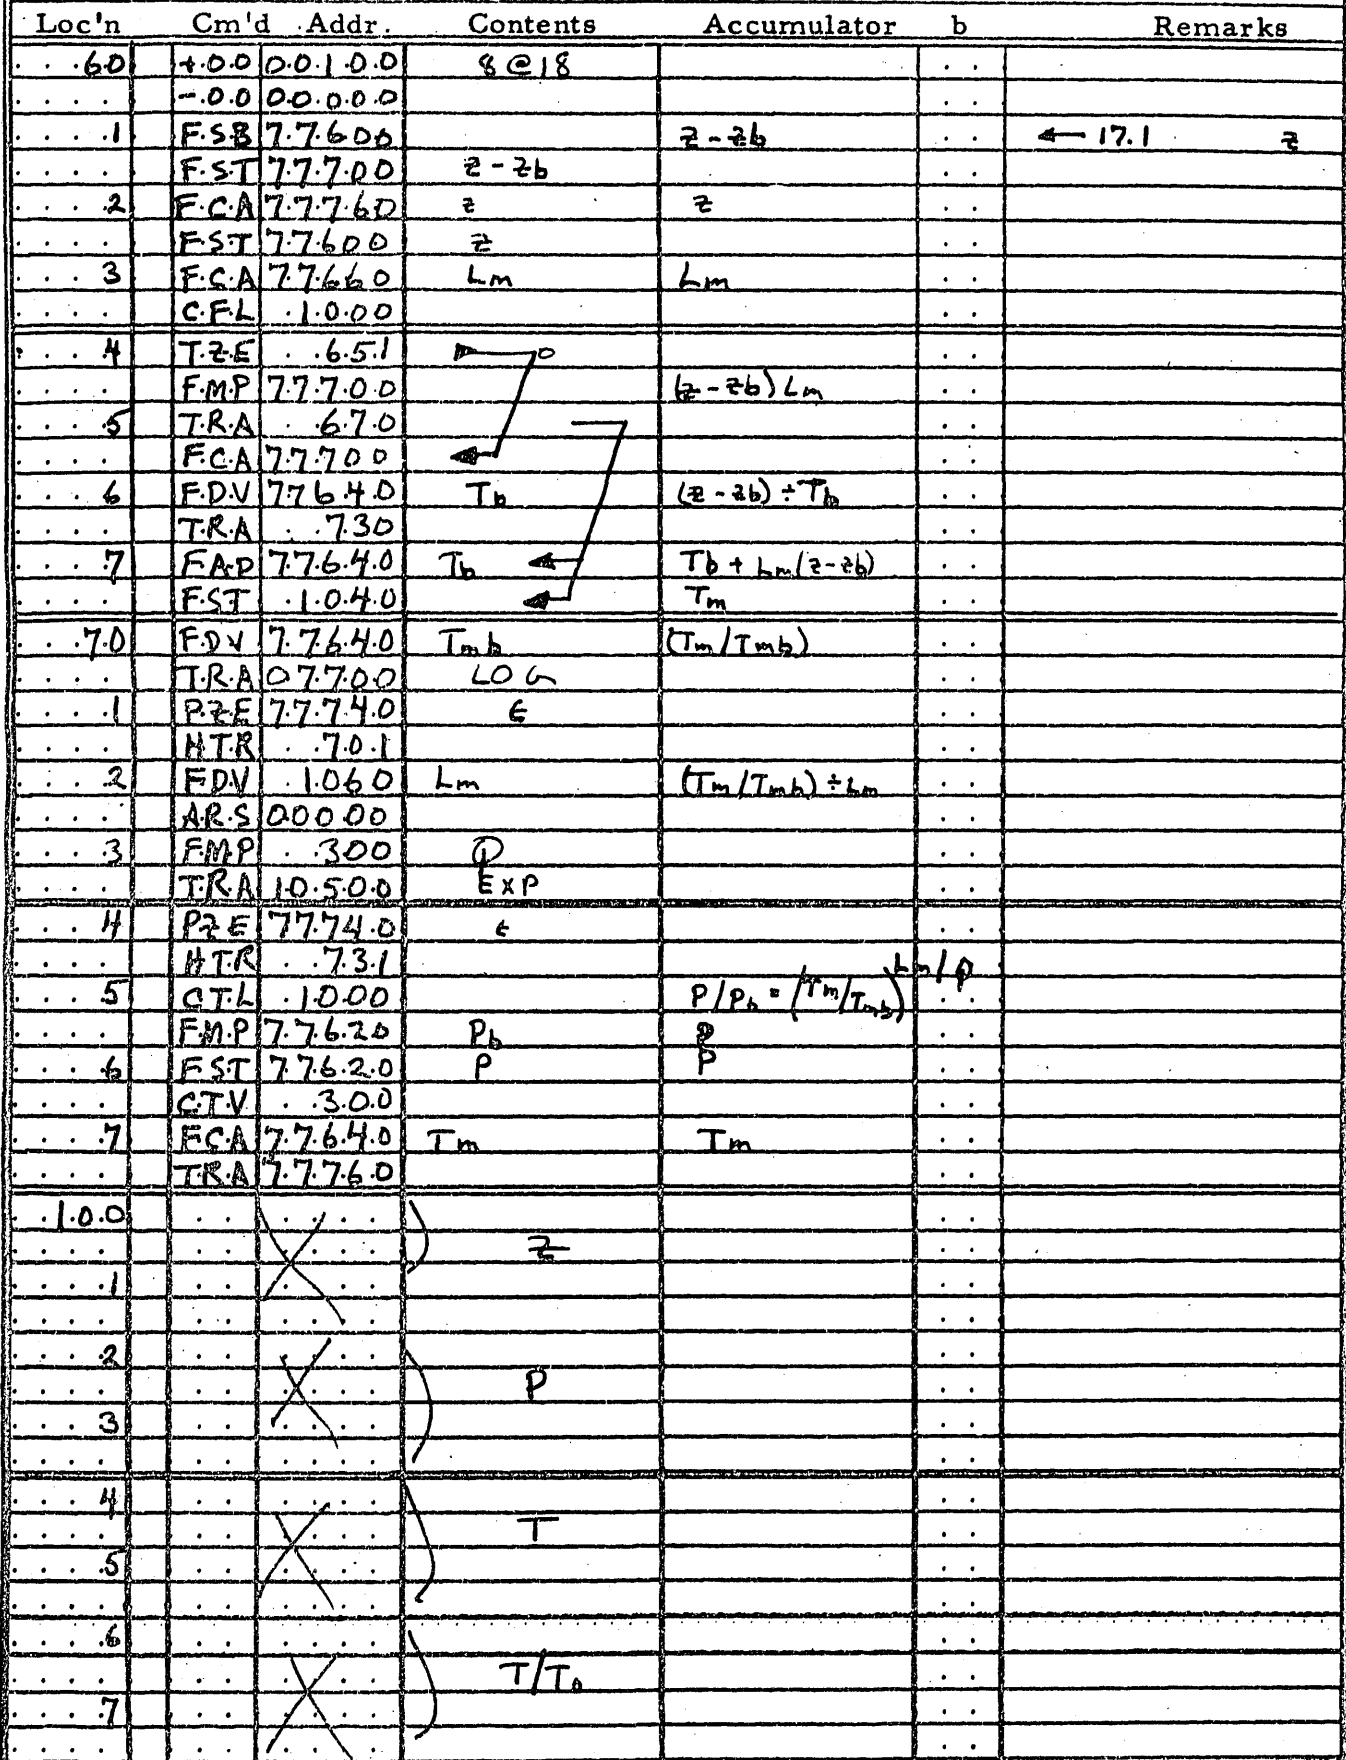 Loc'n Cm'd Addr. Contents Accumulator b Remarks
60 +00 00100 8@18
-00 00000
1 FSB 77600 z - zb ← 17.1 z
FST 77700 z - zb
2 FCA 77760 z z
FST 77600 z
3 FCA 77660 Lm Lm
CFL 1000
4 TZE 651
FMP 77700 (z - zb) Lm
5 TRA 670
FCA 77700
6 FDV 77640 Tb (z - zb) ÷ Tb
TRA 730
7 FAD 77640 Tb Tb + Lm(z-zb)
FST 1040 Tm
70 FDV 77640 Tmb (Tm/Tmb)
TRA 07700 LOG
1 PZE 77740 ε
HTR 701
2 FDV 1060 Lm (Tm/Tmb) ÷ Lm
ARS 00000
3 FMP 300
TRA 10500 EXP
4 PZE 77740 ε
HTR 731
5 CTL 1000 P/Pb = (Tm/Tmb)
FMP 77620 Pb P
6 FST 77620 P P
CTV 300
7 FCA 77640 Tm Tm
TRA 77760
100
Z
1
2
P
3
4
T
5
6
T/T₀
7